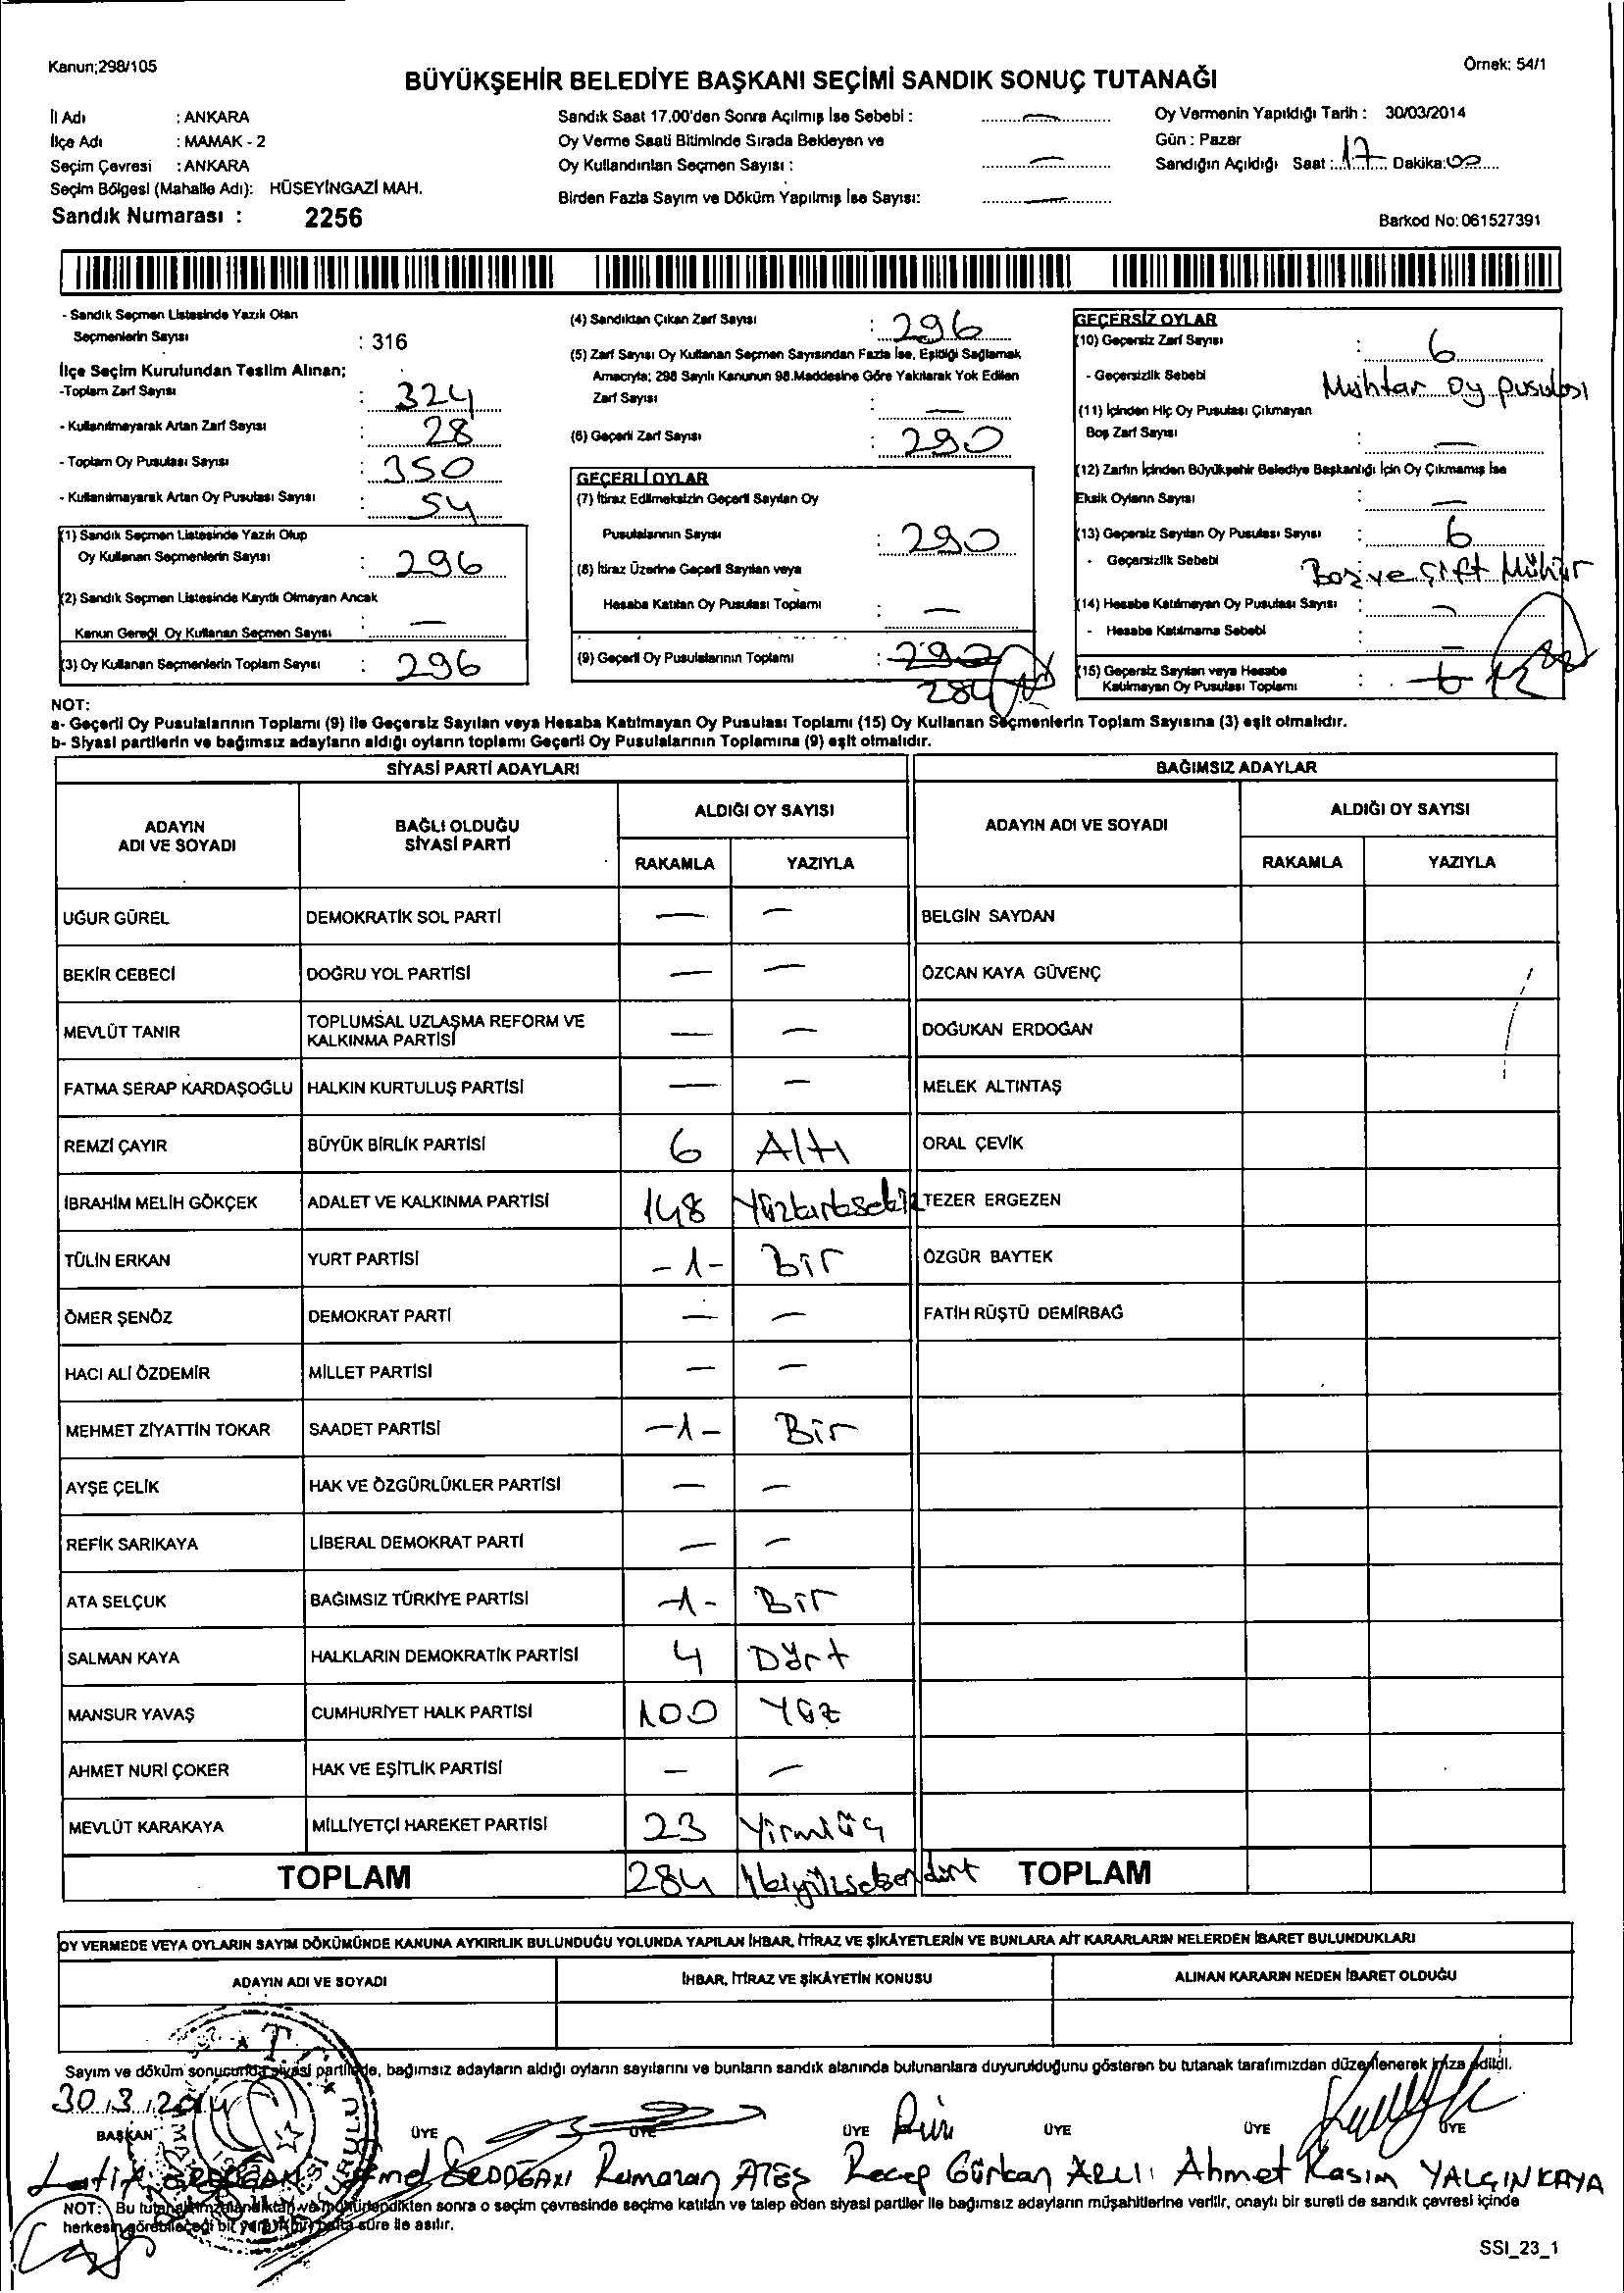 Kanun;298/105
Örnek: 54/1
BÜYÜKŞEHİR BELEDİYE BAŞKANI SEÇİMİ SANDIK SONUÇ TUTANAĞI
İl Adı : ANKARA
İlçe Adı : MAMAK - 2
Seçim Çevresi : ANKARA
Seçim Bölgesi (Mahalle Adı): HÜSEYİNGAZİ MAH.
Sandık Numarası : 2256
Sandık Saat 17.00'den Sonra Açılmış İse Sebebi : —
Oy Verme Saati Bitiminde Sırada Bekleyen ve
Oy Kullandırılan Seçmen Sayısı : —
Birden Fazla Sayım ve Döküm Yapılmış İse Sayısı: —
Oy Vermenin Yapıldığı Tarih : 30/03/2014
Gün : Pazar
Sandığın Açıldığı Saat : 17 Dakika: 00
Barkod No: 061527391
- Sandık Seçmen Listesinde Yazılı Olan
Seçmenlerin Sayısı : 316
İlçe Seçim Kurulundan Teslim Alınan;
-Toplam Zarf Sayısı : 324
- Kullanılmayarak Artan Zarf Sayısı : 28
- Toplam Oy Pusulası Sayısı : 350
- Kullanılmayarak Artan Oy Pusulası Sayısı : 54
(1) Sandık Seçmen Listesinde Yazılı Olup
Oy Kullanan Seçmenlerin Sayısı : 296
(2) Sandık Seçmen Listesinde Kayıtlı Olmayan Ancak
Kanun Gereği Oy Kullanan Seçmen Sayısı : —
(3) Oy Kullanan Seçmenlerin Toplam Sayısı : 296
(4) Sandıktan Çıkan Zarf Sayısı : 296
(5) Zarf Sayısı Oy Kullanan Seçmen Sayısından Fazla İse, Eşitliği Sağlamak
Amacıyla; 298 Sayılı Kanunun 98.Maddesine Göre Yakılarak Yok Edilen
Zarf Sayısı : —
(6) Geçerli Zarf Sayısı : 290
GEÇERLİ OYLAR
(7) İtiraz Edilmeksizin Geçerli Sayılan Oy
Pusulalarının Sayısı : 290
(8) İtiraz Üzerine Geçerli Sayılan veya
Hesaba Katılan Oy Pusulası Toplamı : —
(9) Geçerli Oy Pusulalarının Toplamı : 290
284
GEÇERSİZ OYLAR
(10) Geçersiz Zarf Sayısı : 6
- Geçersizlik Sebebi : Muhtar oy pusulası
(11) İçinden Hiç Oy Pusulası Çıkmayan
Boş Zarf Sayısı : —
(12) Zarfın İçinden Büyükşehir Belediye Başkanlığı İçin Oy Çıkmamış İse
Eksik Oyların Sayısı : —
(13) Geçersiz Sayılan Oy Pusulası Sayısı : 6
- Geçersizlik Sebebi Boş ve Çift Mühür
(14) Hesaba Katılmayan Oy Pusulası Sayısı : —
- Hesaba Katılmama Sebebi : —
(15) Geçersiz Sayılan veya Hesaba
Katılmayan Oy Pusulası Toplamı : 6 12
NOT:
a- Geçerli Oy Pusulalarının Toplamı (9) ile Geçersiz Sayılan veya Hesaba Katılmayan Oy Pusulası Toplamı (15) Oy Kullanan Seçmenlerin Toplam Sayısına (3) eşit olmalıdır.
b- Siyasi partilerin ve bağımsız adayların aldığı oyların toplamı Geçerli Oy Pusulalarının Toplamına (9) eşit olmalıdır.
SİYASİ PARTİ ADAYLARI BAĞIMSIZ ADAYLAR
ADAYIN ADI VE SOYADI BAĞLI OLDUĞU SİYASİ PARTİ ALDIĞI OY SAYISI ADAYIN ADI VE SOYADI ALDIĞI OY SAYISI
RAKAMLA YAZIYLA RAKAMLA YAZIYLA
UĞUR GÜREL DEMOKRATİK SOL PARTİ — — BELGİN SAYDAN
BEKİR CEBECİ DOĞRU YOL PARTİSİ — — ÖZCAN KAYA GÜVENÇ
MEVLÜT TANIR TOPLUMSAL UZLAŞMA REFORM VE KALKINMA PARTİSİ — — DOĞUKAN ERDOĞAN
FATMA SERAP KARDAŞOĞLU HALKIN KURTULUŞ PARTİSİ — — MELEK ALTINTAŞ
REMZİ ÇAYIR BÜYÜK BİRLİK PARTİSİ 6 Altı ORAL ÇEVİK
İBRAHİM MELİH GÖKÇEK ADALET VE KALKINMA PARTİSİ 148 Yüzkırksekiz TEZER ERGEZEN
TÜLİN ERKAN YURT PARTİSİ -1- Bir ÖZGÜR BAYTEK
ÖMER ŞENÖZ DEMOKRAT PARTİ — — FATİH RÜŞTÜ DEMİRBAĞ
HACI ALİ ÖZDEMİR MİLLET PARTİSİ — —
MEHMET ZİYATTİN TOKAR SAADET PARTİSİ -1- Bir
AYŞE ÇELİK HAK VE ÖZGÜRLÜKLER PARTİSİ — —
REFİK SARIKAYA LİBERAL DEMOKRAT PARTİ — —
ATA SELÇUK BAĞIMSIZ TÜRKİYE PARTİSİ -1- Bir
SALMAN KAYA HALKLARIN DEMOKRATİK PARTİSİ 4 Dört
MANSUR YAVAŞ CUMHURİYET HALK PARTİSİ 100 Yüz
AHMET NURİ ÇOKER HAK VE EŞİTLİK PARTİSİ — —
MEVLÜT KARAKAYA MİLLİYETÇİ HAREKET PARTİSİ 23 Yirmiüç
TOPLAM 284 İkiyüzseksendört TOPLAM
OY VERMEDE VEYA OYLARIN SAYIM DÖKÜMÜNDE KANUNA AYKIRILIK BULUNDUĞU YOLUNDA YAPILAN İHBAR, İTİRAZ VE ŞİKÂYETLERİN VE BUNLARA AİT KARARLARIN NELERDEN İBARET BULUNDUKLARI
ADAYIN ADI VE SOYADI İHBAR, İTİRAZ VE ŞİKÂYETİN KONUSU ALINAN KARARIN NEDEN İBARET OLDUĞU
Sayım ve döküm sonucunda siyasi partilerle, bağımsız adayların aldığı oyların sayılarını ve bunların sandık alanında bulunanlara duyurulduğunu gösteren bu tutanak tarafımızdan düzenlenerek imza edildi.
30.3.2014
BAŞKAN ÜYE ÜYE ÜYE ÜYE ÜYE ÜYE
Latif ERDOĞAN ERDOĞAN Ramazan ATEŞ Recep Gürkan ARLI Ahmet Kasım YALÇINKAYA
NOT: Bu tutanak imzalandıktan ve mühürlendikten sonra o seçim çevresinde seçime katılan ve talep eden siyasi partiler ile bağımsız adayların müşahitlerine verilir, onaylı bir sureti de sandık çevresi içinde
herkesin görebileceği bir yere bir hafta süre ile asılır.
SSI_23_1